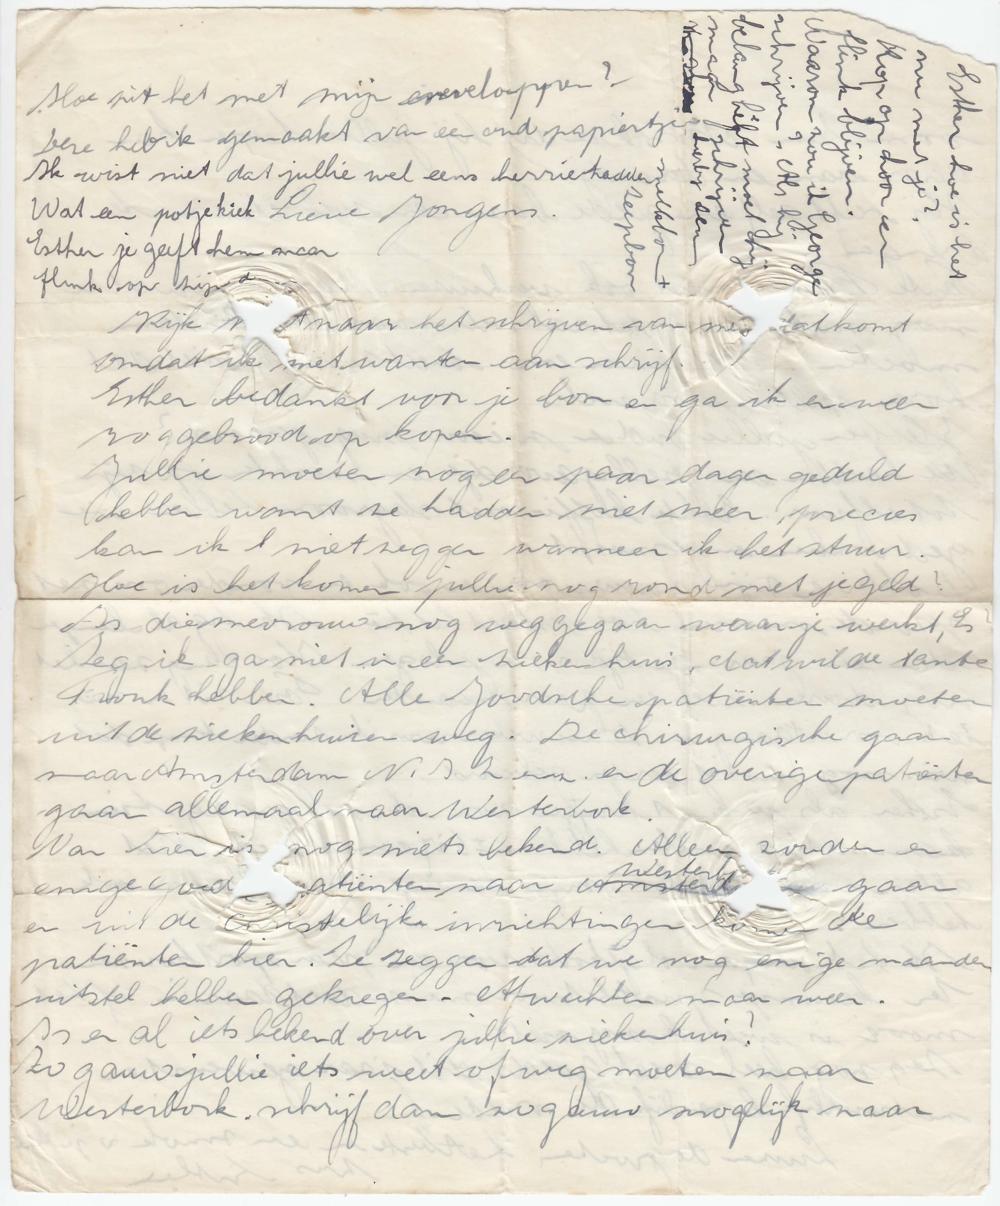 Hoe zit het met mijn enveloppen?
Deze heb ik gemaakt van een oud papiertje
Ik wist niet dat jullie wel eens herrie hadden
Wat een potjekiek Lieve Jongens.
Esther je geeft hem maar
flink op zijn d
Esther hoe is het
nu met je?
Kop op hoor en
flink blijven.
Waarom zou ik George
schrijven? Als hij
belang heeft moet hij
maar schrijven
melkbon +
zeepbon
Kijk niet naar het schrijven van me dat komt
omdat ik met wanten aan schrijf.
Esther bedankt voor je bon en ga ik er weer
roggebrood op kopen.
Jullie moeten nog een paar dagen geduld
hebben want ze hadden niet meer, precies
kan ik 't niet zeggen wanneer ik het stuur.
Hoe is het komen jullie nog rond met je geld?
Is die mevrouw nog weggegaan waar je werkt, Es?
Zeg ik ga niet in een ziekenhuis, dat wilde tante
hebben. Alle Joodsche patiënten moeten
uit de ziekenhuizen weg. De chirurgische gaan
naar Amsterdam N.I.Z. en de overige patiënten
gaan allemaal naar Westerbork.
Van hier is nog niets bekend. Alleen zouden er
enige goed patiënten naar Westerb gaan
en uit de christelijke inrichtingen komen de
patiënten hier. Ze zeggen dat we nog enige maanden
uitstel hebben gekregen - Afwachten maar weer.
Is er al iets bekend over jullie ziekenhuis?
Zo gauw jullie iets weet of weg moeten naar
Westerbork. schrijf dan zo gauw mogelijk naar